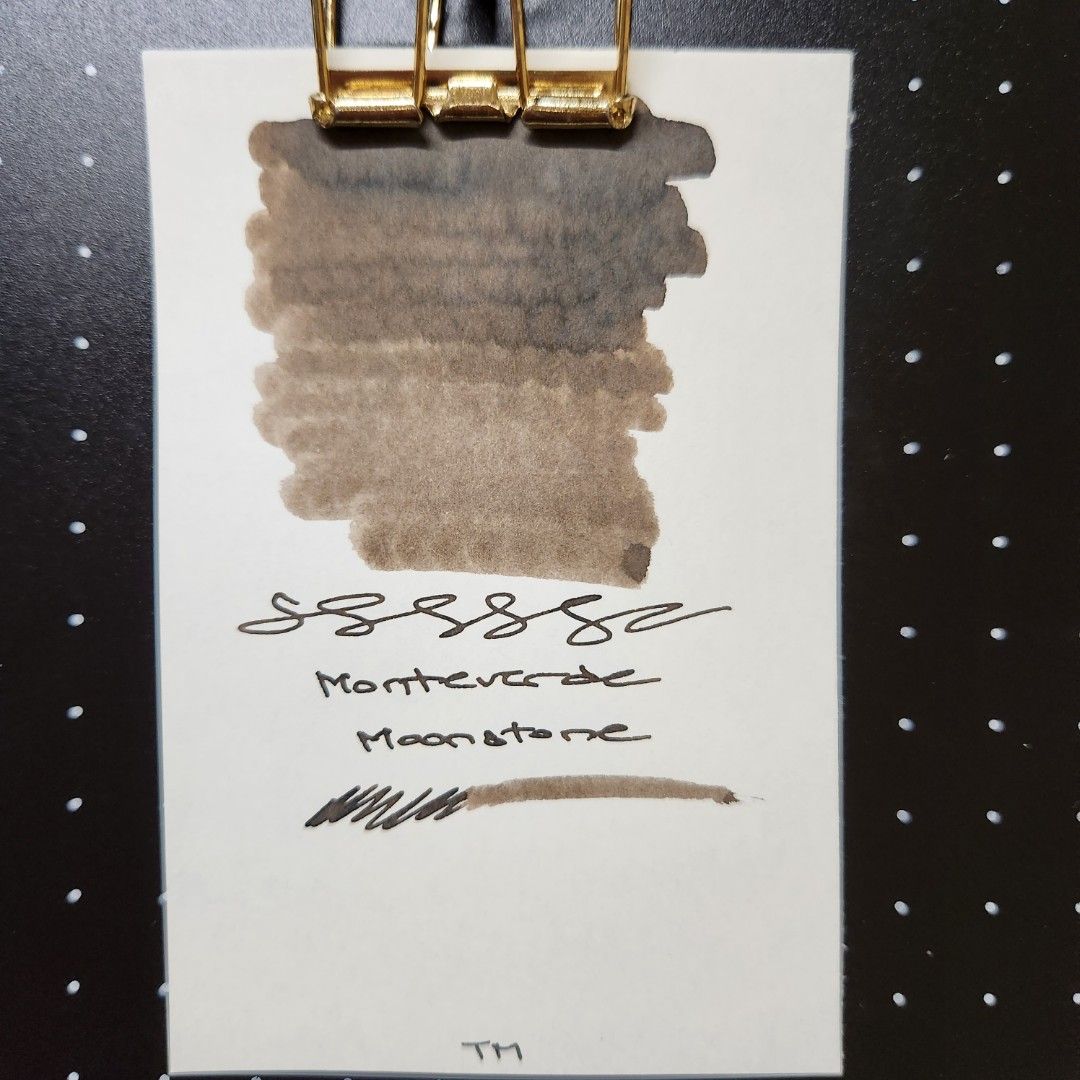 Monteverde
Moonstone
TM